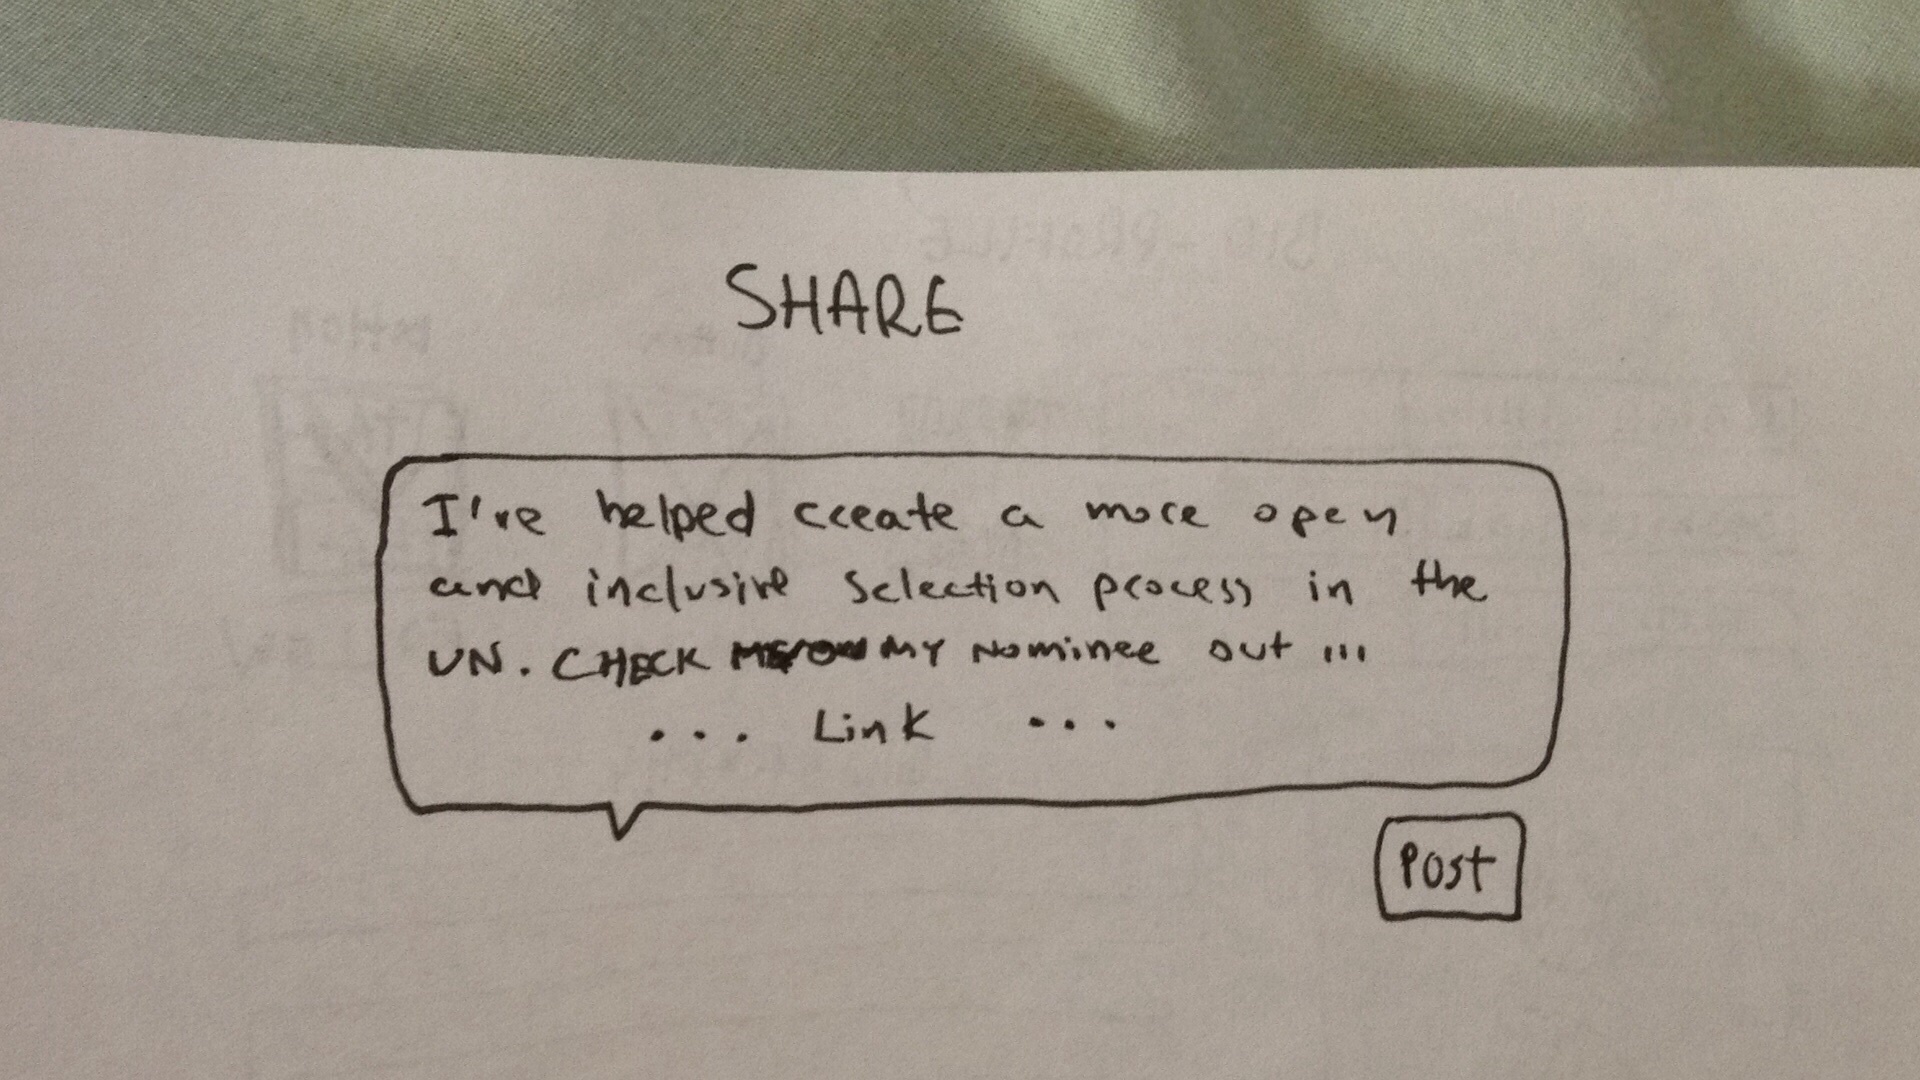 SHARE
I've helped create a more open
and inclusive selection process in the
UN. CHECK MY Nominee out ...
... Link ...
Post